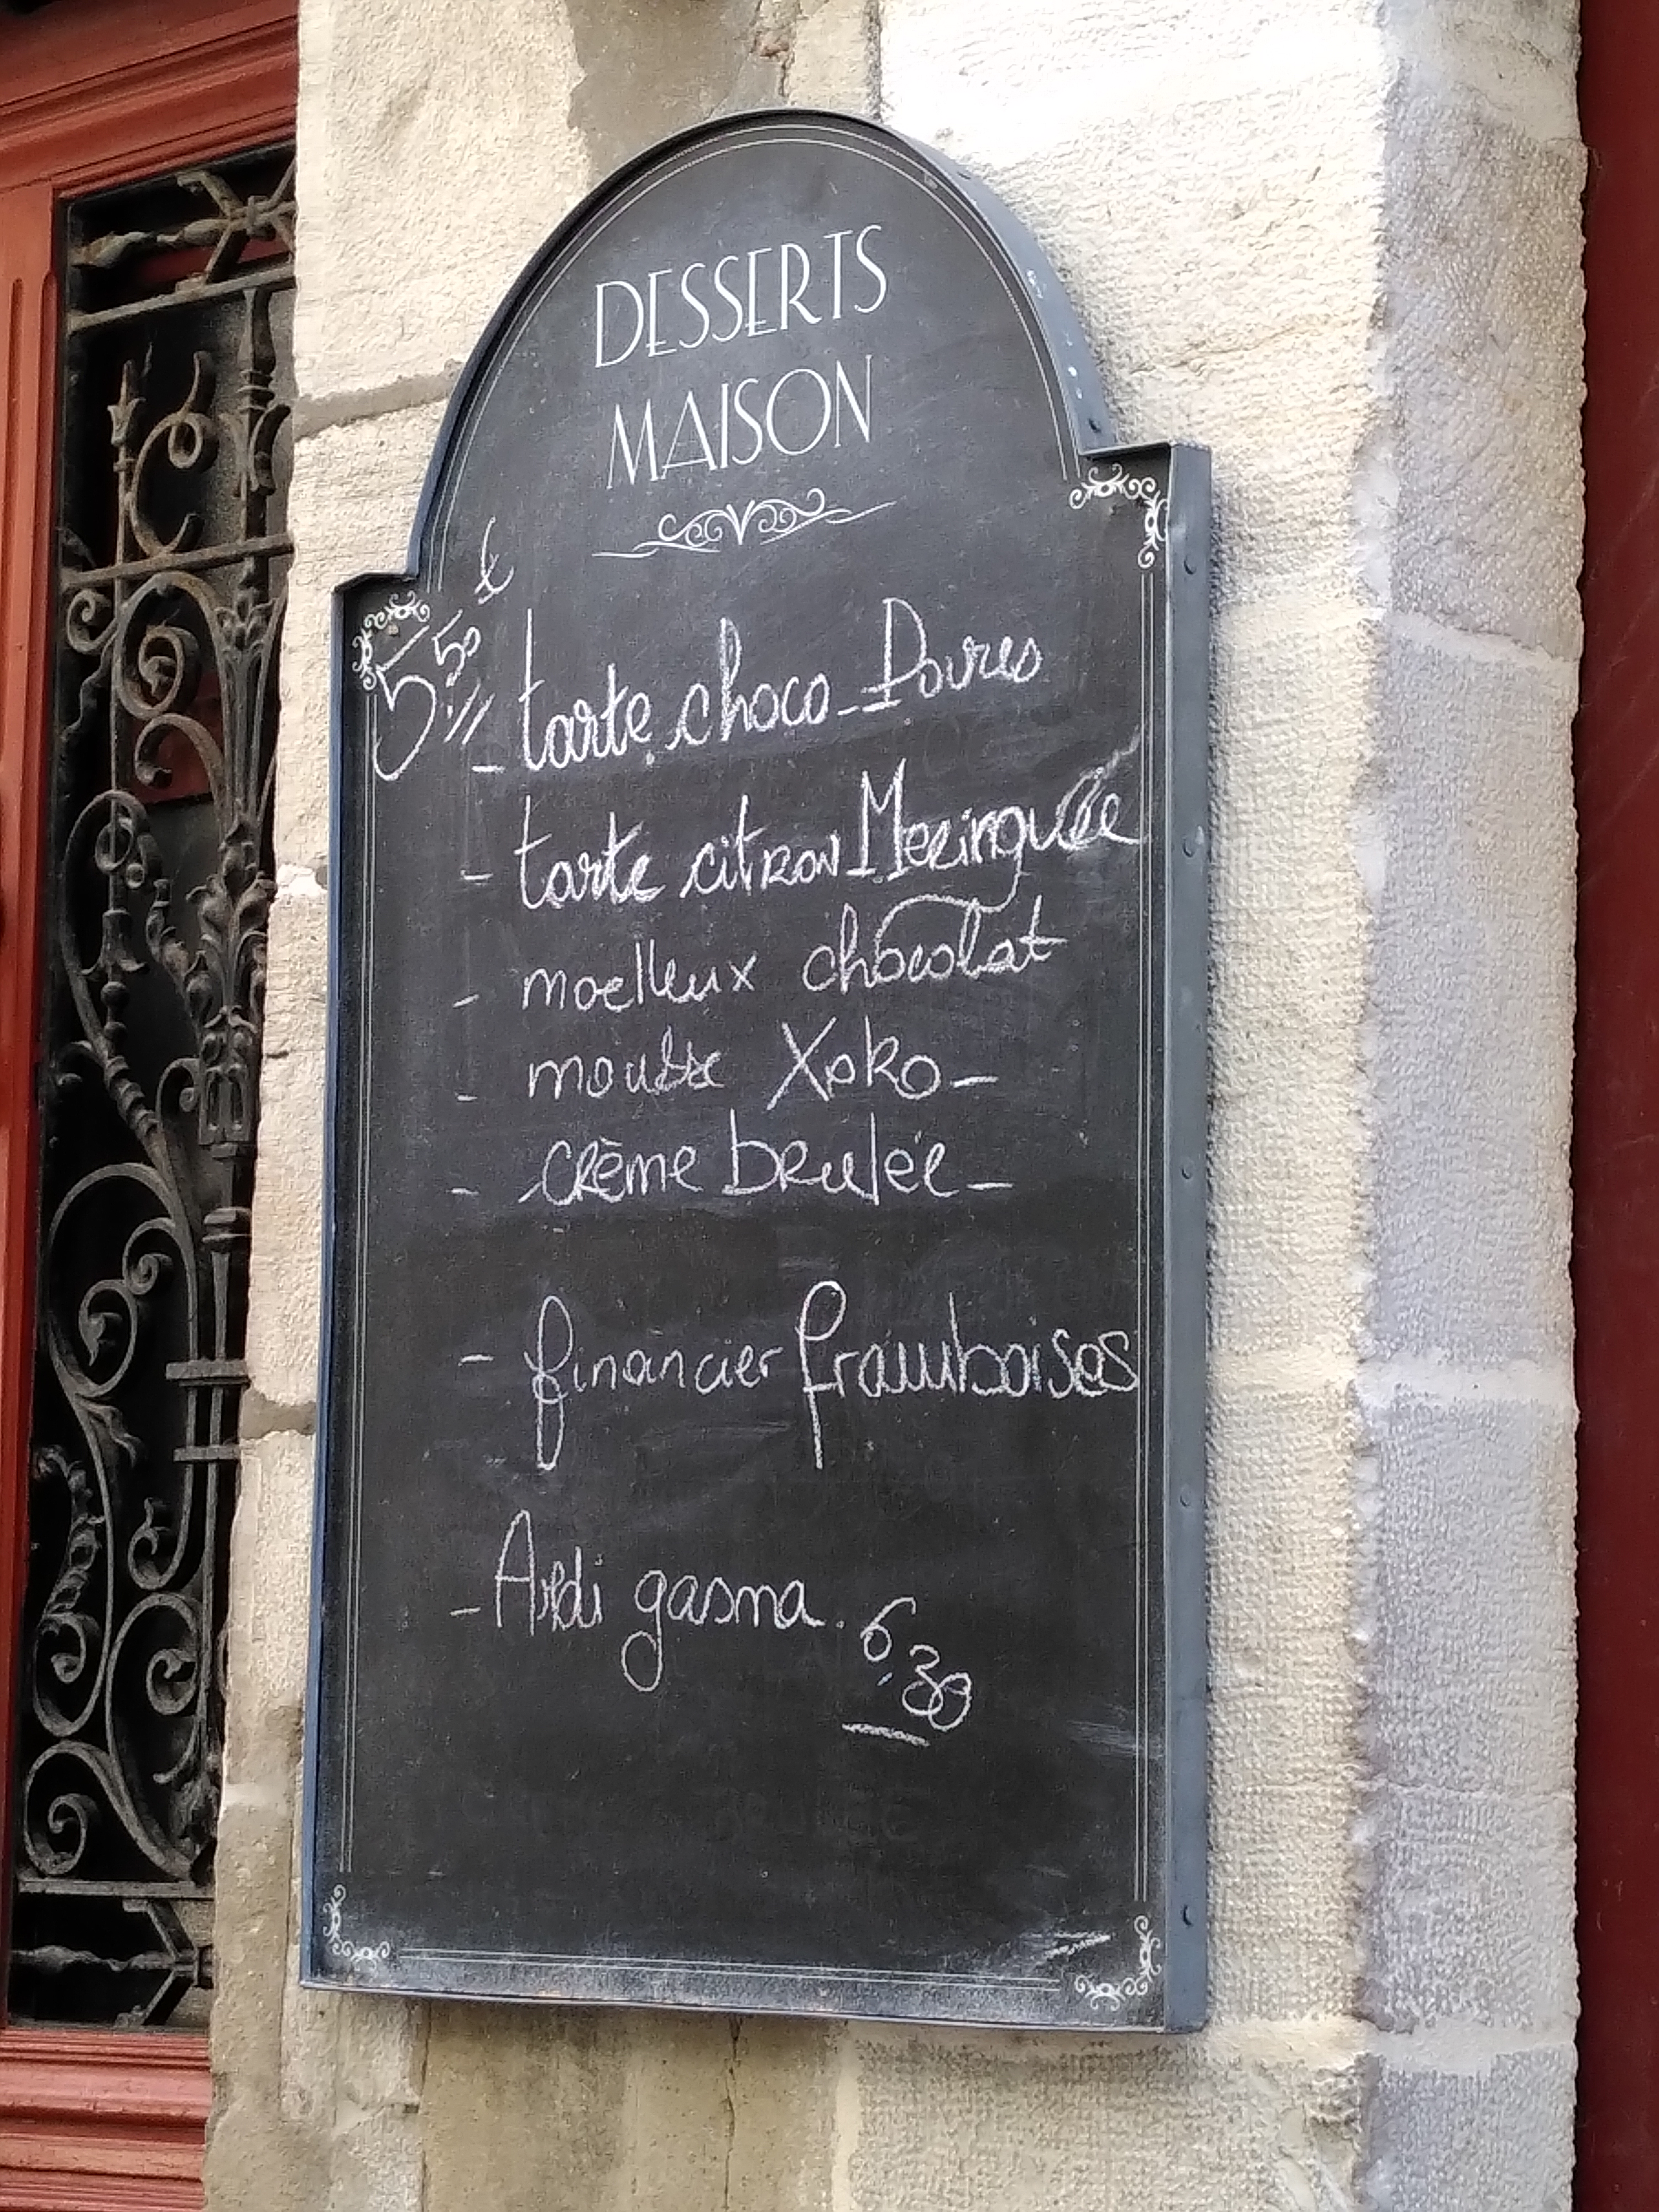 DESSERTS
MAISON
5,50 €
- tarte choco-Poires
- tarte citron Meringuée
- moelleux chocolat
- mousse Xoko-
- crème brulée-
- financier framboises
- Ardi gasna. 6,30